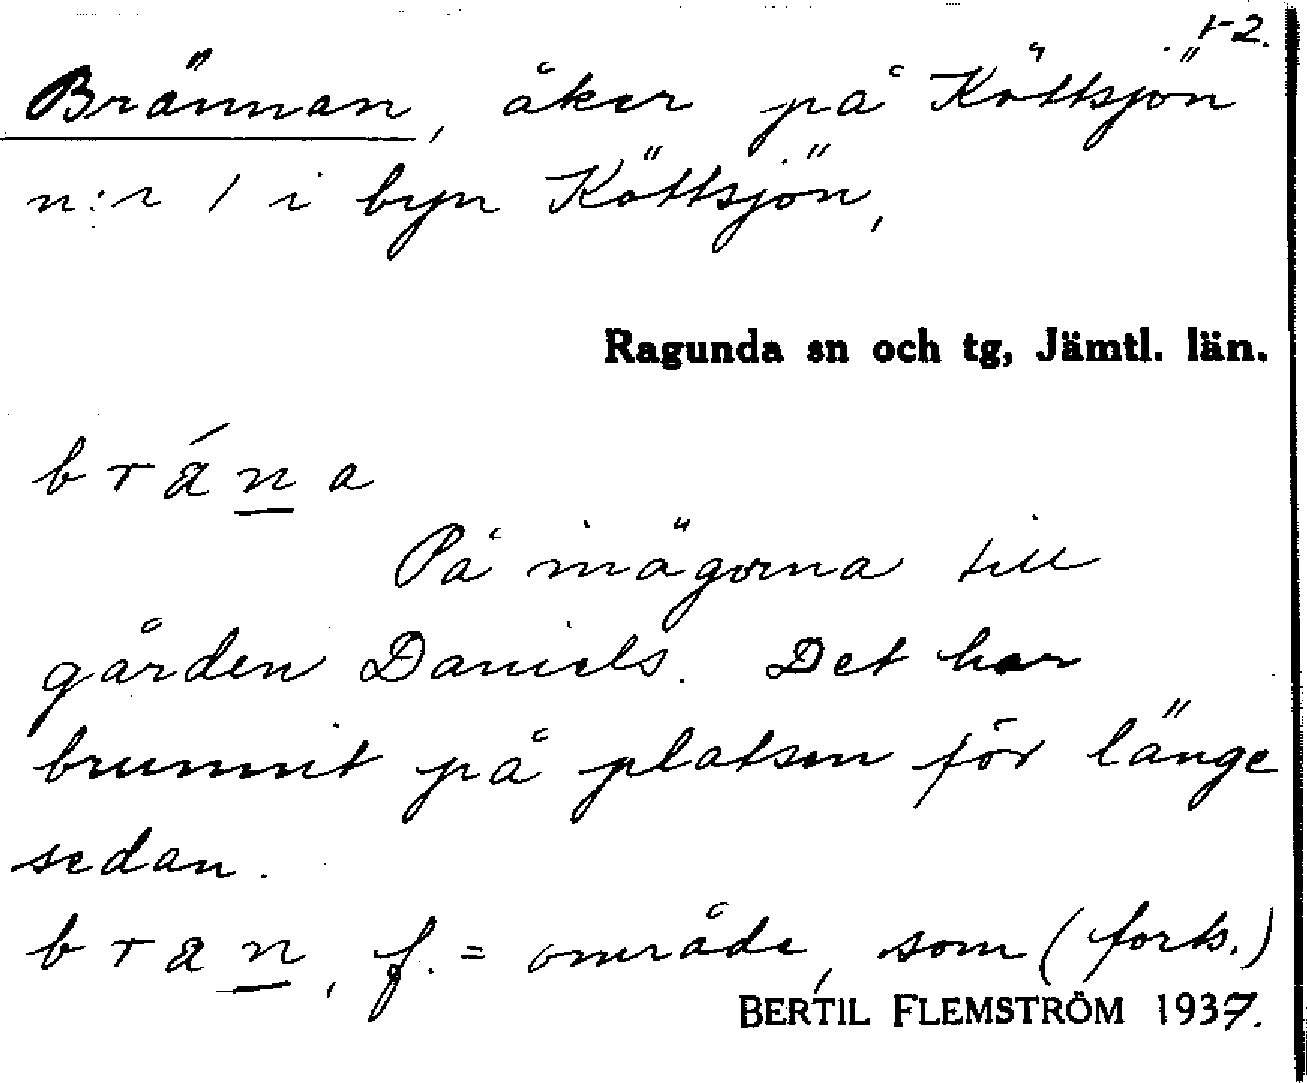 1-2.
Brännan, åker på Köttsjön
n:r 1 i byn Köttsjön,
Ragunda sn och tg, Jämtl. län.
brána
På inägorna till
gården Daniels. Det har
brunnit på platsen för länge
sedan.
bran, f. = område, som (forts.)
BERTIL FLEMSTRÖM 1937.